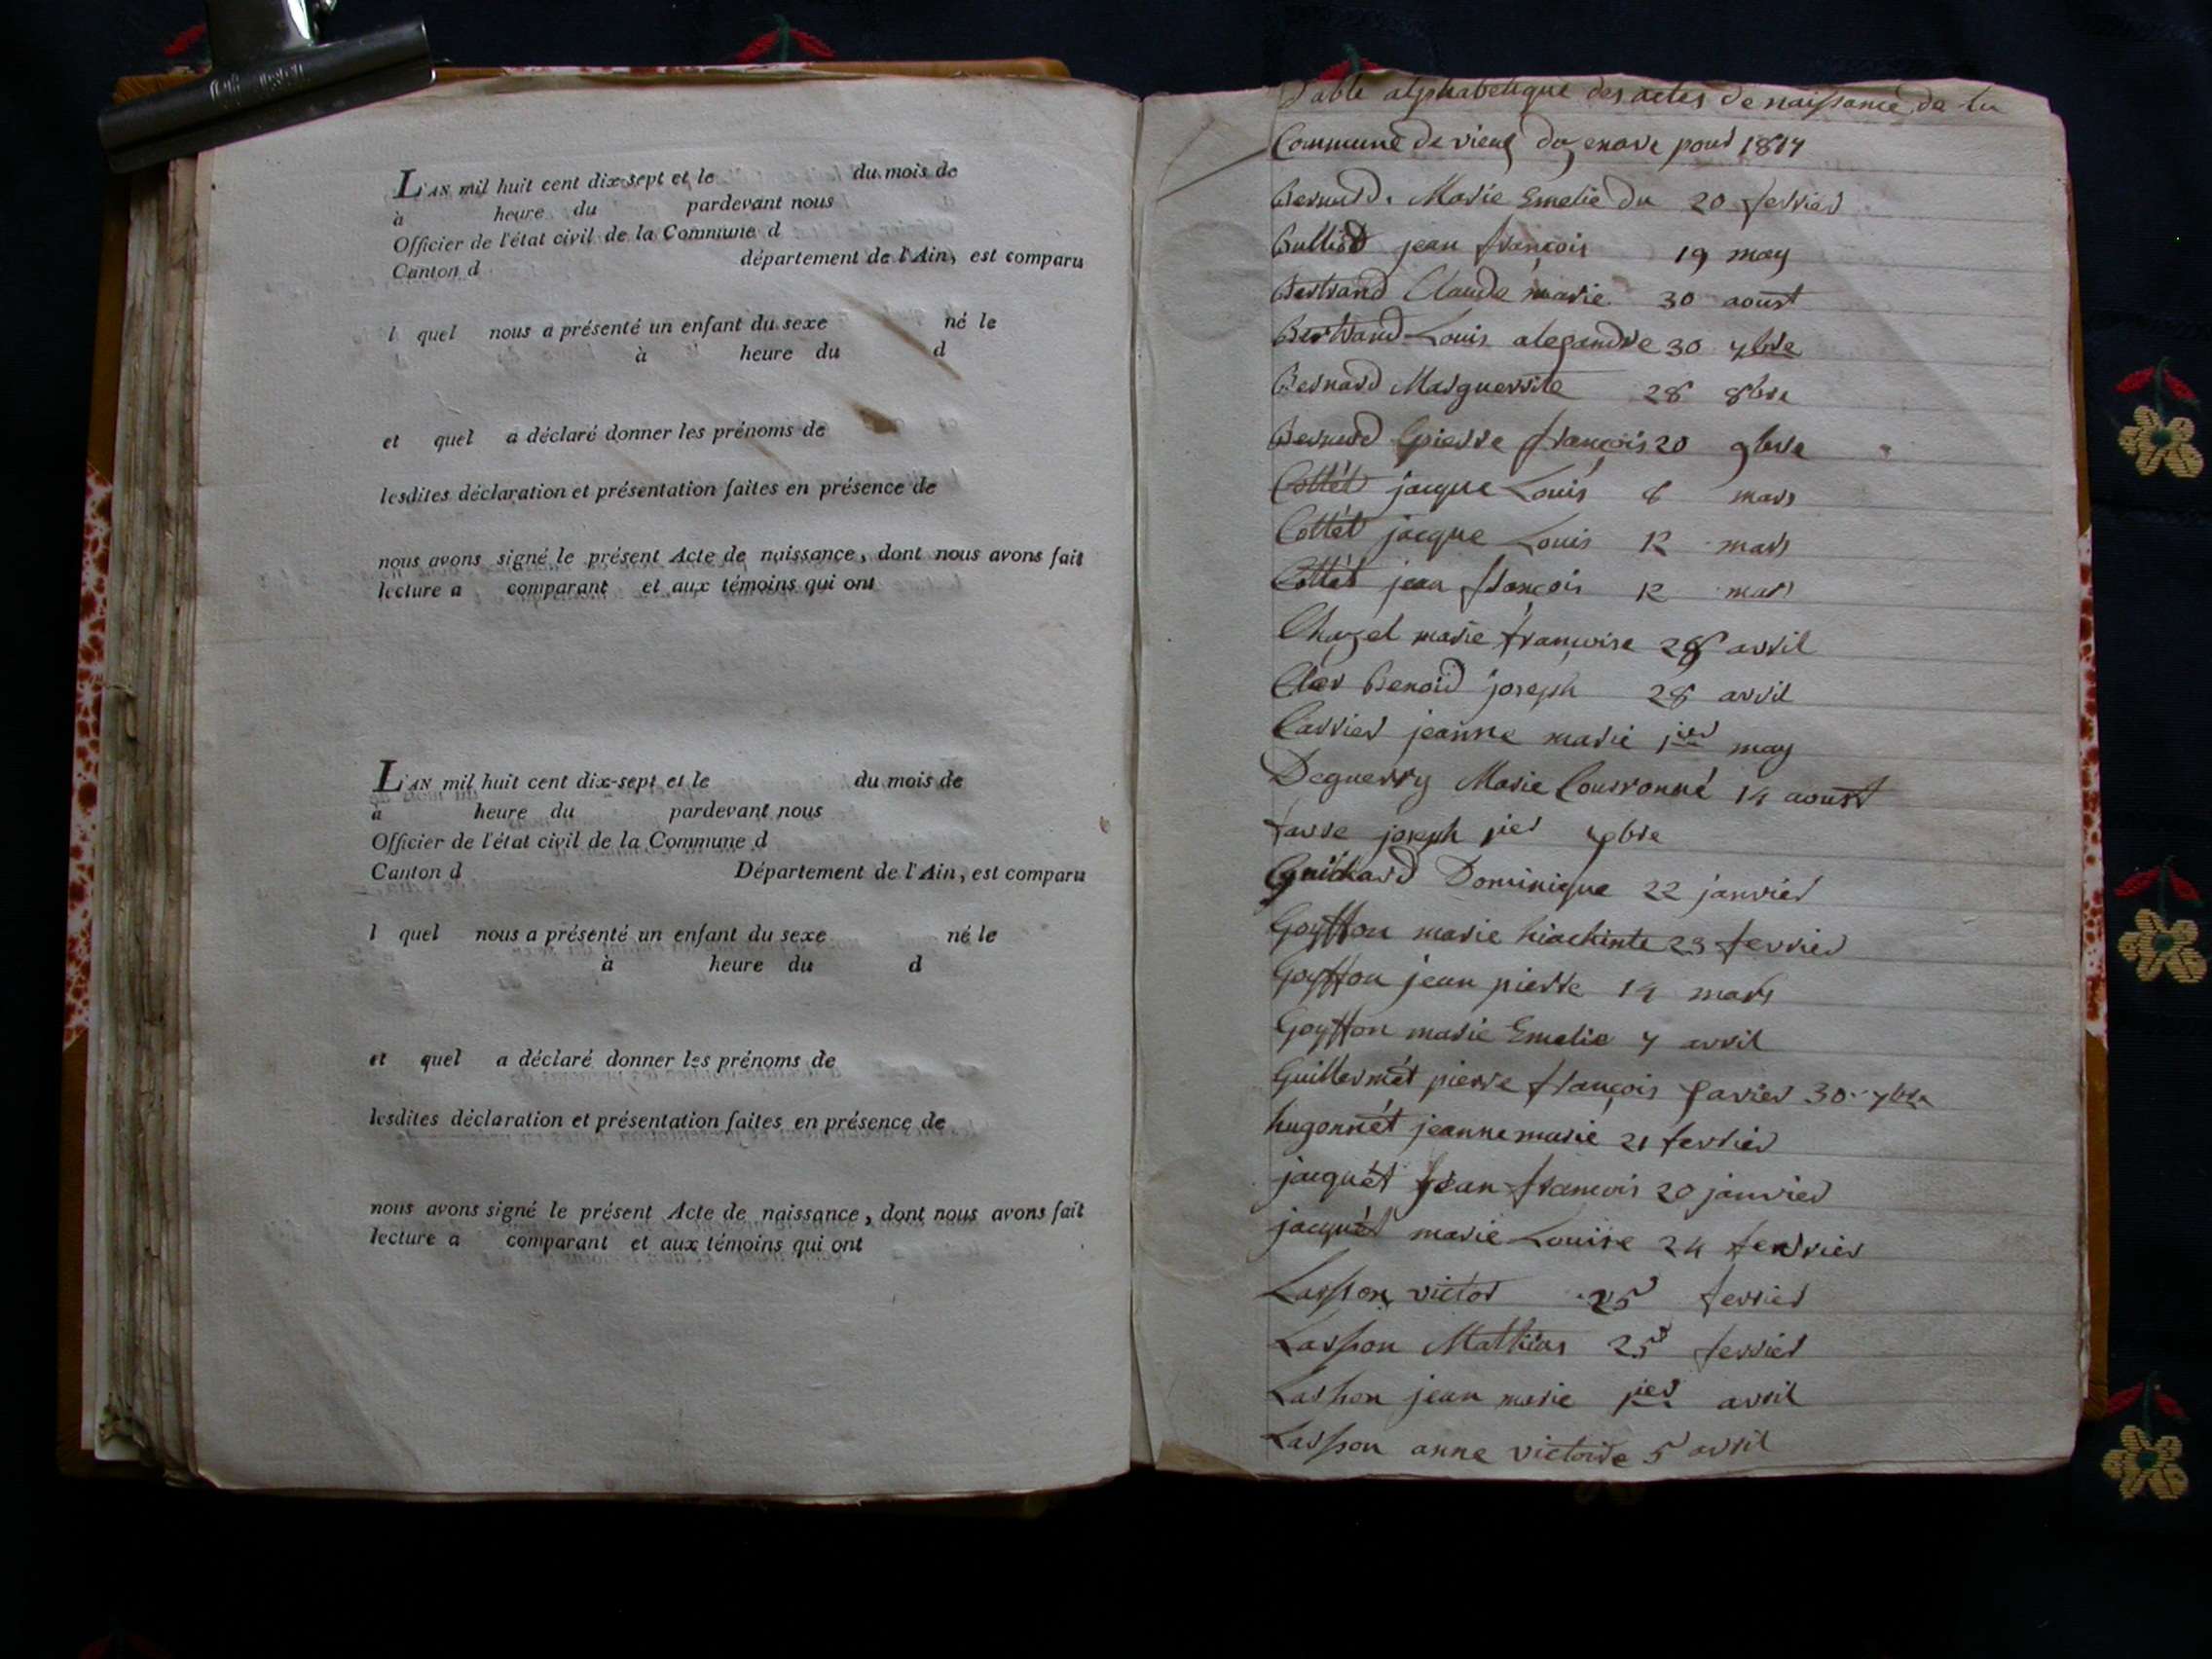 L'AN mil huit cent dix-sept et le du mois de
à heure du pardevant nous
Officier de l'état civil de la Commune d
Canton d département de l'Ain, est comparu
l quel nous a présenté un enfant du sexe né le
à heure du d
et quel a déclaré donner les prénoms de
lesdites déclaration et présentation faites en présence de
nous avons signé le présent Acte de naissance, dont nous avons fait
lecture a comparant et aux témoins qui ont
L'AN mil huit cent dix-sept et le du mois de
à heure du pardevant nous
Officier de l'état civil de la Commune d
Canton d Département de l'Ain, est comparu
l quel nous a présenté un enfant du sexe né le
à heure du d
et quel a déclaré donner les prénoms de
lesdites déclaration et présentation faites en présence de
nous avons signé le présent Acte de naissance, dont nous avons fait
lecture a comparant et aux témoins qui ont
Table alphabetique des actes de naissance de la
Commune de vieuf dizenave pour 1817
Bernard. Marie Emelie du 20 fevrier
Bulliod jean françois 19 may
Bertrand Claude marie 30 aoust
Bertrand Louis alegandre 30 7bre
Bernard Marguerrite 28 8bre
Bernard pierre françois 20 9bre
Cottét jacque Louis 8 mars
Cottét jacque Louis 12 mars
Cottét jean françois 12 mars
Chazel marie françoise 28 avril
Clér Benoid joseph 28 avril
Carrier jeanne marie 1ier may
Deguerry Marie Courronné 14 aoust
favre joseph 1ier 9bre
Guichard Dominique 22 janvier
Goyffon marie hiachinte 23 fevrier
Goyffon jean pierre 14 mars
Goyffon marie Emelie 7 avril
Guillermét pierre françois Xavier 30 7bre
hugonnét jeanne marie 21 fevrier
jacquét jean françois 20 janvier
jacquét marie Louise 24 fevrier
Larpon victor 25 fevrier
Larpon Mathias 25 fevrier
Larpon jean marie 1ier avril
Larpon anne victoire 5 avril